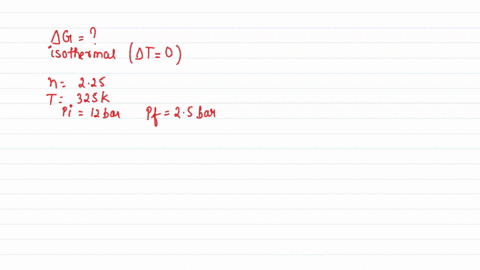 ΔG = ?
isothermal (ΔT = 0)
n = 2.25
T = 325K
Pi = 12 bar Pf = 2.5 bar